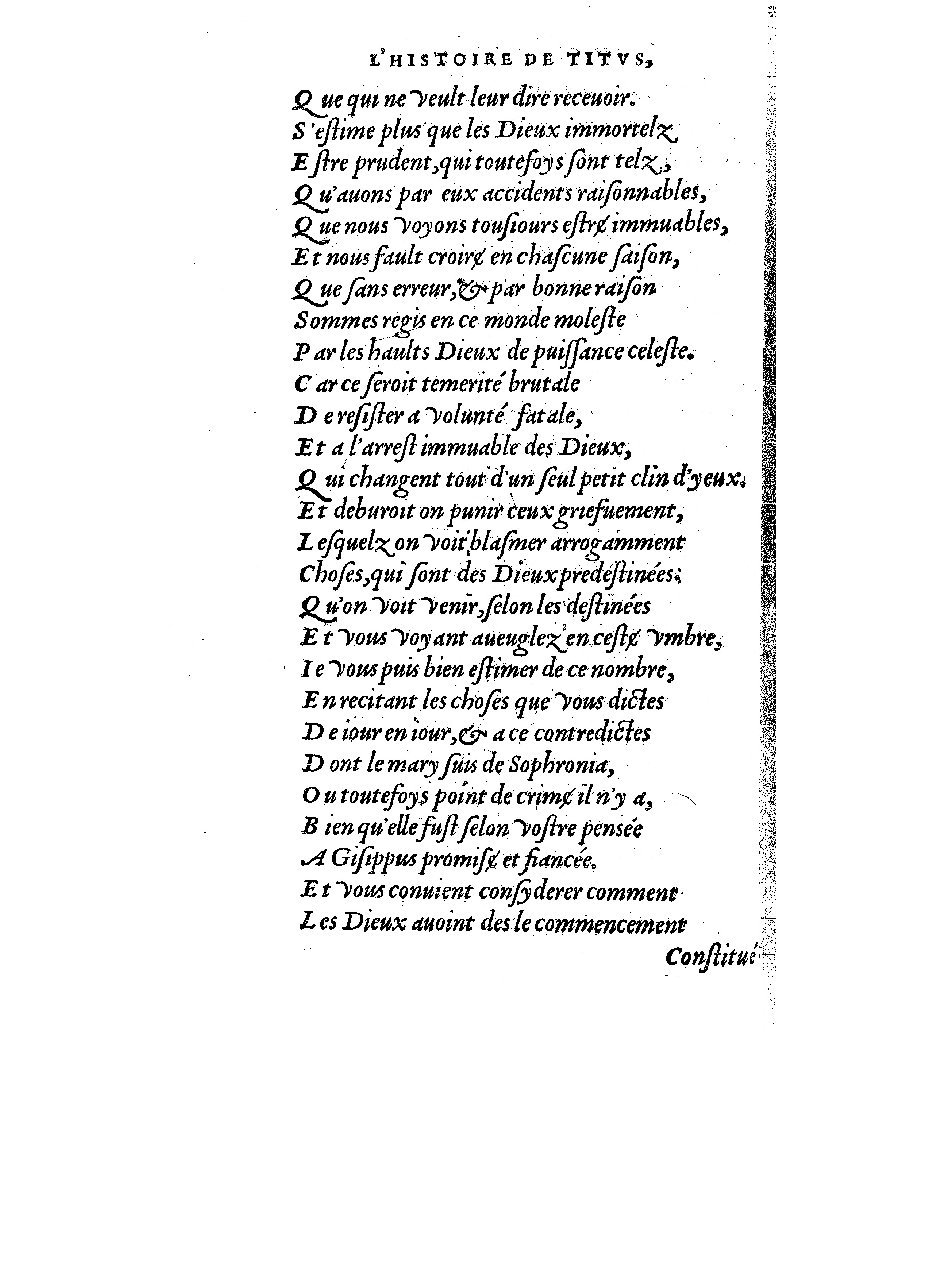 L'HISTOIRE DE TITVS,
Que qui ne veult leur dire receuoir.
S'eſtime plus que les Dieux immortelz
Eſtre prudent, qui toutefoys ſont telz,
Qu'auons par eux accidents raiſonnables,
Que nous voyons touſiours eſtrɇ immuables,
Et nous fault croirɇ en chaſcune ſaiſon,
Que ſans erreur, & par bonne raiſon
Sommes regis en ce monde moleſte
Par les haults Dieux de puiſſance celeſte.
Car ce ſeroit temerité brutale
De reſiſter a volunté fatale,
Et a l'arreſt immuable des Dieux,
Qui changent tout d'un ſeul petit clin d'yeux.
Et deburoit on punir ceux griefuement,
Leſquelz on voit blaſmer arrogamment
Choſes, qui ſont des Dieux predeſtinées:
Qu'on voit venir, ſelon les deſtinées
Et vous voyant aueuglez en ceſtɇ vmbre,
Ie vous puis bien eſtimer de ce nombre,
En recitant les choſes que vous dictes
De iour en iour, & a ce contredictes
Dont le mary ſuis de Sophronia,
Ou toutefoys point de crimɇ il n'y a,
Bien qu'elle fuſt ſelon voſtre pensée
A Giſippus promiſɇ et fiancée.
Et vous conuient conſyderer comment
Les Dieux auoint des le commencement
Conſtitué